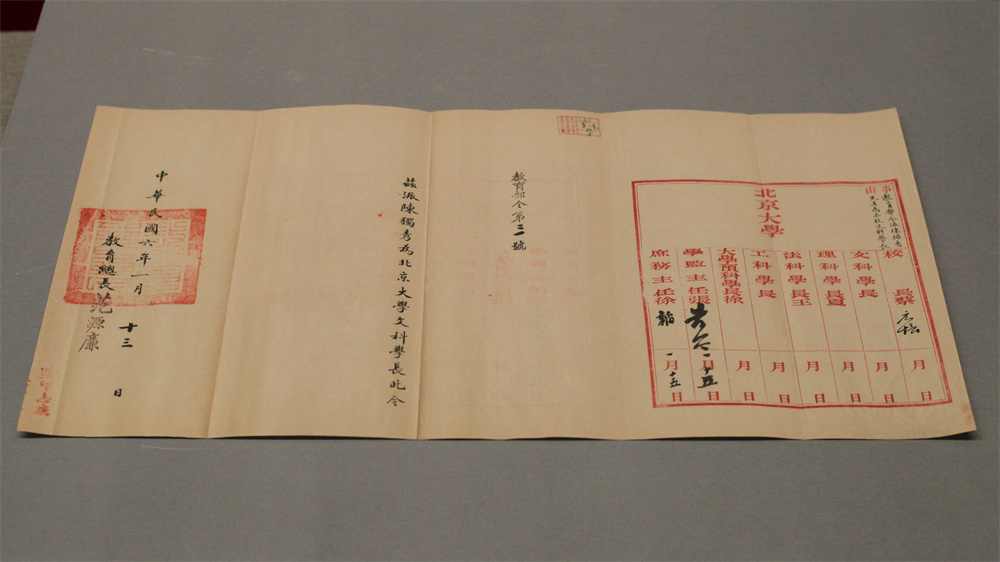 事由
教育部令派陳獨秀
先生為本校文科學長
北京大學
校長蔡 元培 月 日
文科學長 月 日
理科學長夏 月 日
法科學長王 月 日
工科學長 月 日
大學預科學長徐 月 日
學監主任張 一月十五日
庶務主任徐 一月十五日
教育部令第三號
茲派陳獨秀為北京大學文科學長此令
中華民國六年一月十三日
教育總長范源廉